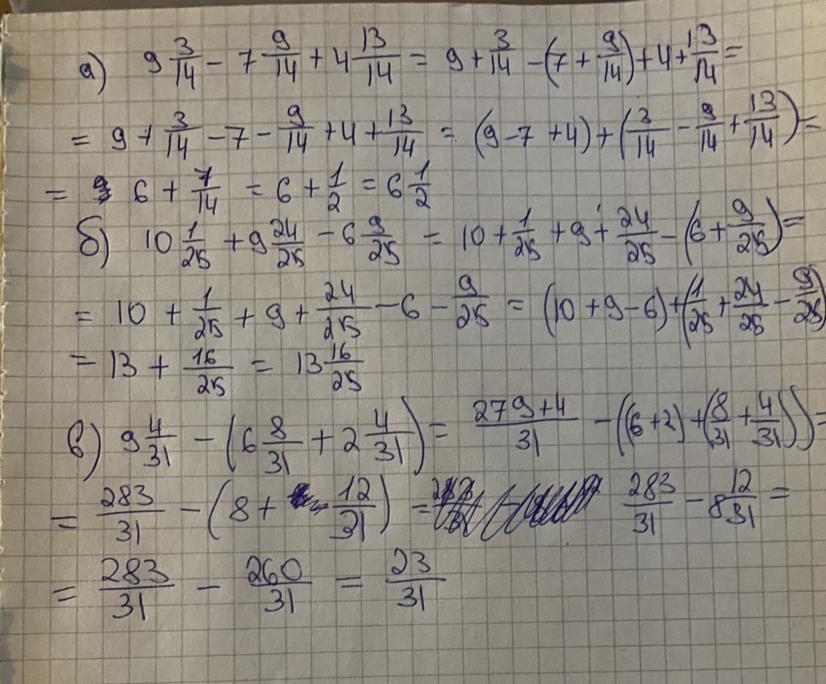 а) 9 3/14 - 7 9/14 + 4 13/14 = 9 + 3/14 - (7 + 9/14) + 4 + 13/14 =
= 9 + 3/14 - 7 - 9/14 + 4 + 13/14 = (9 - 7 + 4) + (3/14 - 9/14 + 13/14) =
= 6 + 7/14 = 6 + 1/2 = 6 1/2
б) 10 1/25 + 9 24/25 - 6 9/25 = 10 + 1/25 + 9 + 24/25 - (6 + 9/25) =
= 10 + 1/25 + 9 + 24/25 - 6 - 9/25 = (10 + 9 - 6) + (1/25 + 24/25 - 9/25)
= 13 + 16/25 = 13 16/25
в) 9 4/31 - (6 8/31 + 2 4/31) = (279 + 4)/31 - ((6 + 2) + (8/31 + 4/31)) =
= 283/31 - (8 + 12/31) = 283/31 - 8 12/31 =
= 283/31 - 260/31 = 23/31